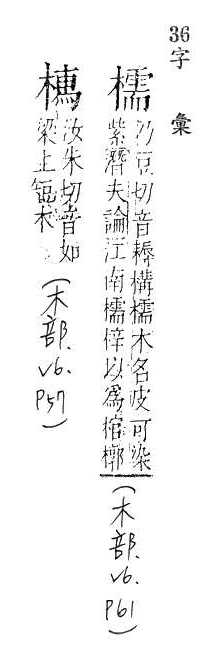 36字 彙
檽
乃豆切音耨構檽木名皮可染
紫潛夫論江南檽梓以爲棺槨
(木部. v6. P61)
檽
汝朱切音如
梁上短木
(木部. v6. P57)